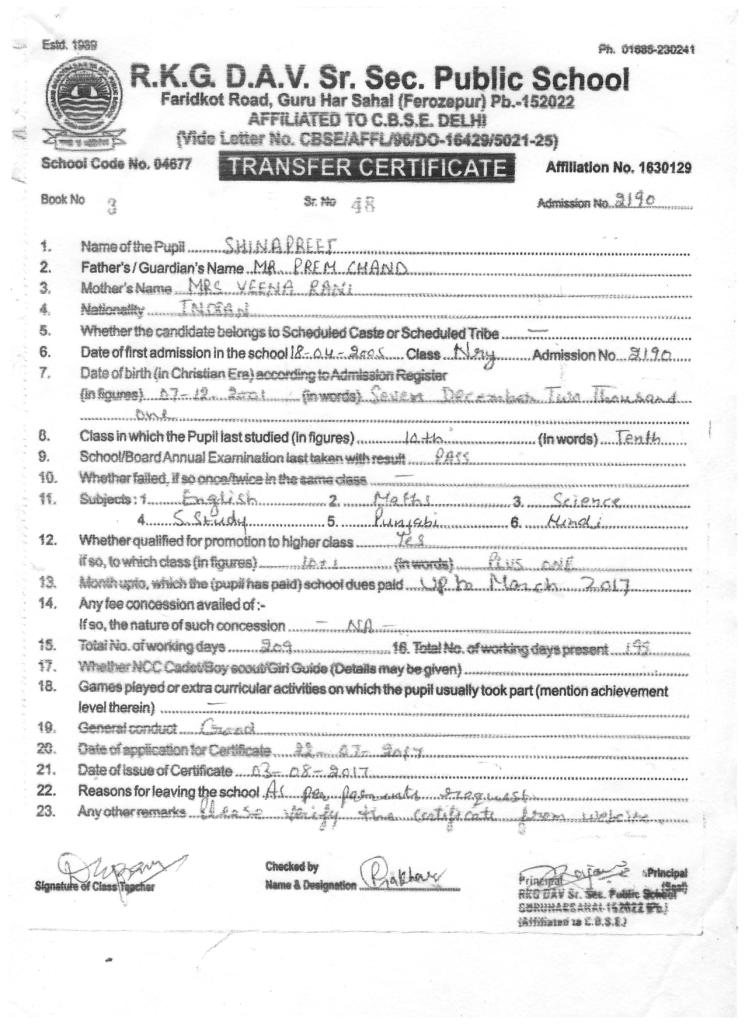 Estd. 1989
Ph. 01685-230241
R.K.G. D.A.V. Sr. Sec. Public School
Faridkot Road, Guru Har Sahai (Ferozepur) Pb.-152022
AFFILIATED TO C.B.S.E. DELHI
(Vide Letter No. CBSE/AFFL/96/DO-16429/5021-25)
School Code No. 04677 TRANSFER CERTIFICATE Affiliation No. 1630129
Book No 3 Sr. No 48 Admission No. 2190
1. Name of the Pupil SHINAPREET
2. Father's / Guardian's Name MR. PREM CHAND
3. Mother's Name MRS VEENA RANI
4. Nationality INDIAN
5. Whether the candidate belongs to Scheduled Caste or Scheduled Tribe —
6. Date of first admission in the school 18-04-2005 Class Nry Admission No. 2190
7. Date of birth (in Christian Era) according to Admission Register
(in figures) 07-12-2001 (in words) Seven December Two Thousand
one
8. Class in which the Pupil last studied (in figures) 10th (in words) Tenth
9. School/Board Annual Examination last taken with result PASS
10. Whether failed, if so once/twice in the same class —
11. Subjects : 1. English 2. Maths 3. Science
4. S.Study 5. Punjabi 6. Hindi
12. Whether qualified for promotion to higher class Yes
if so, to which class (in figures) 10+1 (in words) PLUS ONE
13. Month upto, which the (pupil has paid) school dues paid Up to March 2017
14. Any fee concession availed of :-
If so, the nature of such concession — NA —
15. Total No. of working days 209 16. Total No. of working days present 195
17. Whether NCC Cadet/Boy scout/Girl Guide (Details may be given)
18. Games played or extra curricular activities on which the pupil usually took part (mention achievement
level therein) —
19. General conduct Good
20. Date of application for Certificate 22-07-2017
21. Date of issue of Certificate 03-08-2017
22. Reasons for leaving the school As per parents request
23. Any other remarks Please verify the certificate from website
Signature of Class Teacher
Checked by
Name & Designation Prakhar
Principal
(Seal)
Principal
RKG DAV Sr. Sec. Public School
GURUHARSAHAI-152022 (Pb.)
(Affiliated to C.B.S.E.)